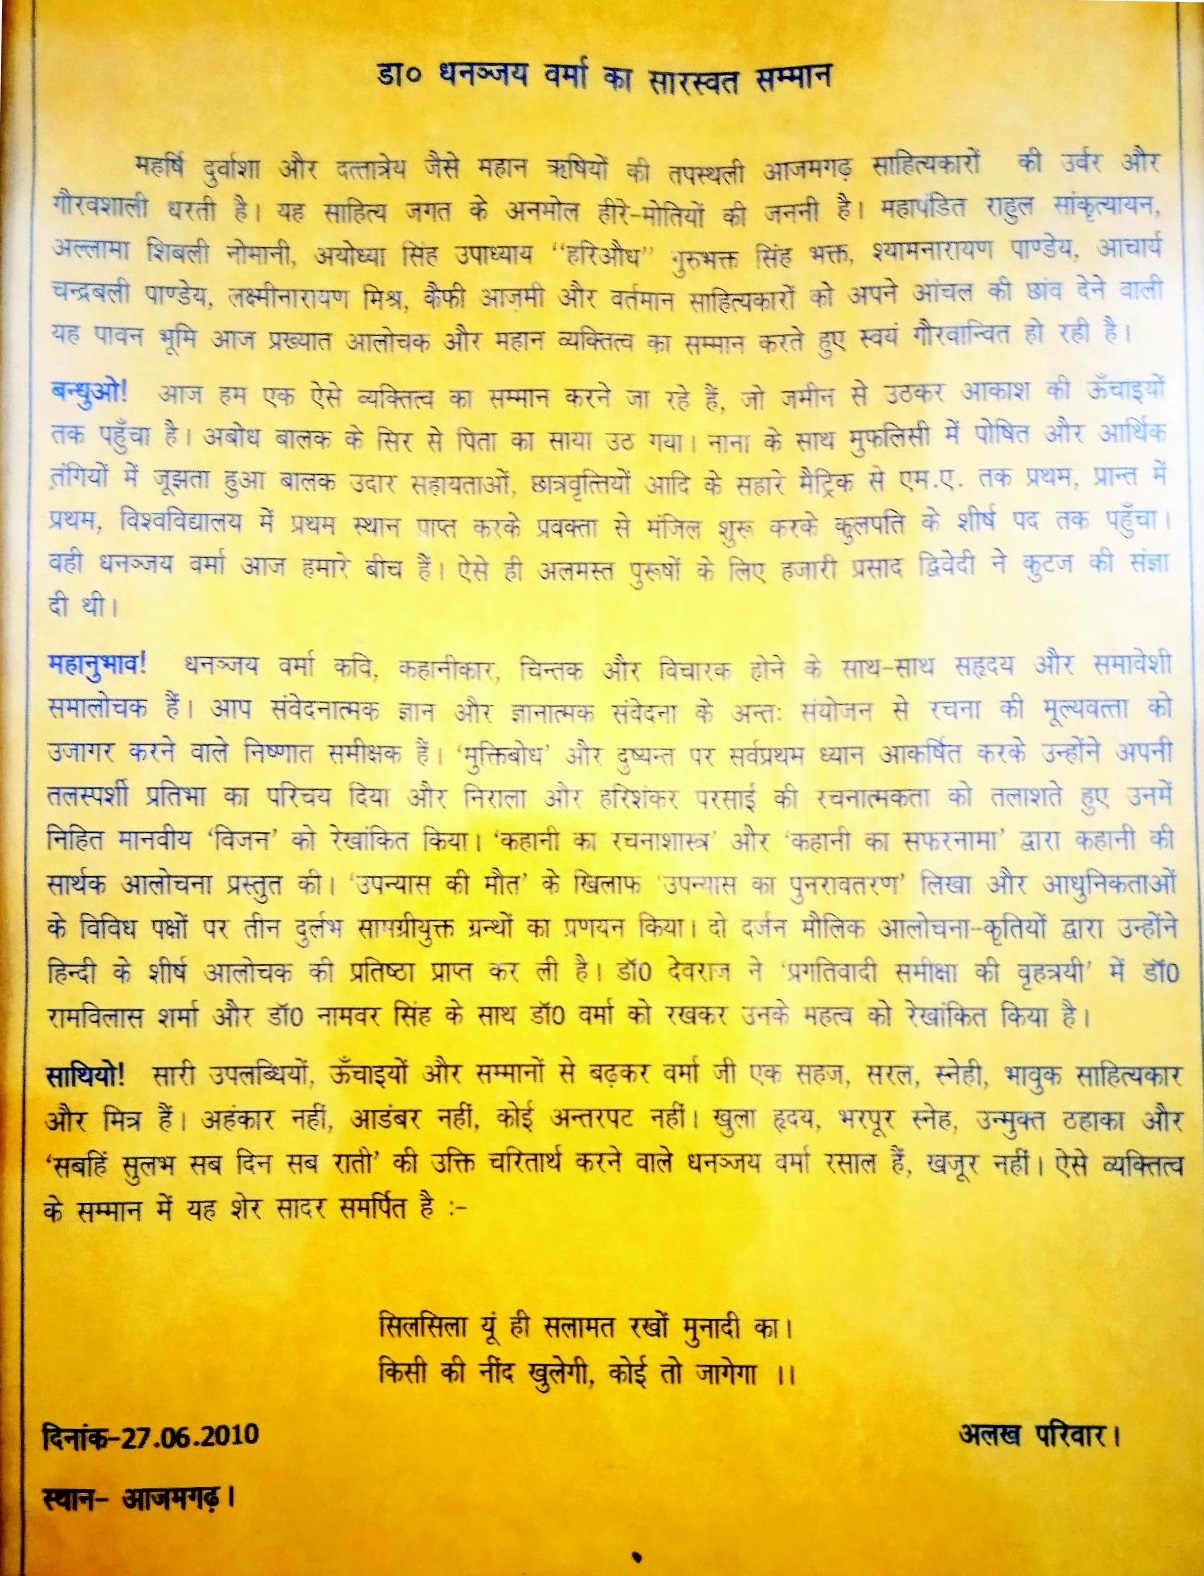 डा० धनञ्जय वर्मा का सारस्वत सम्मान
महर्षि दुर्वाशा और दत्तात्रेय जैसे महान ऋषियों की तपस्थली आजमगढ़ साहित्यकारों की उर्वर और
गौरवशाली धरती है। यह साहित्य जगत के अनमोल हीरे-मोतियों की जननी है। महापंडित राहुल सांकृत्यायन,
अल्लामा शिबली नोमानी, अयोध्या सिंह उपाध्याय "हरिऔध" गुरुभक्त सिंह भक्त, श्यामनारायण पाण्डेय, आचार्य
चन्द्रबली पाण्डेय, लक्ष्मीनारायण मिश्र, कैफी आज़मी और वर्तमान साहित्यकारों को अपने आंचल की छांव देने वाली
यह पावन भूमि आज प्रख्यात आलोचक और महान व्यक्तित्व का सम्मान करते हुए स्वयं गौरवान्वित हो रही है।
बन्धुओ! आज हम एक ऐसे व्यक्तित्व का सम्मान करने जा रहे हैं, जो जमीन से उठकर आकाश की ऊँचाइयों
तक पहुँचा है। अबोध बालक के सिर से पिता का साया उठ गया। नाना के साथ मुफलिसी में पोषित और आर्थिक
तंगियों में जूझता हुआ बालक उदार सहायताओं, छात्रवृत्तियों आदि के सहारे मैट्रिक से एम.ए. तक प्रथम, प्रान्त में
प्रथम, विश्वविद्यालय में प्रथम स्थान पाप्त करके प्रवक्ता से मंजिल शुरू करके कुलपति के शीर्ष पद तक पहुँचा।
वही धनञ्जय वर्मा आज हमारे बीच हैं। ऐसे ही अलमस्त पुरूषों के लिए हजारी प्रसाद द्विवेदी ने कुटज की संज्ञा
दी थी।
महानुभाव! धनञ्जय वर्मा कवि, कहानीकार, चिन्तक और विचारक होने के साथ-साथ सहृदय और समावेशी
समालोचक हैं। आप संवेदनात्मक ज्ञान और ज्ञानात्मक संवेदना के अन्तः संयोजन से रचना की मूल्यवत्ता को
उजागर करने वाले निष्णात समीक्षक हैं। 'मुक्तिबोध' और दुष्यन्त पर सर्वप्रथम ध्यान आकर्षित करके उन्होंने अपनी
तलस्पर्शी प्रतिभा का परिचय दिया और निराला और हरिशंकर परसाई की रचनात्मकता को तलाशते हुए उनमें
निहित मानवीय 'विजन' को रेखांकित किया। 'कहानी का रचनाशास्त्र' और 'कहानी का सफरनामा' द्वारा कहानी की
सार्थक आलोचना प्रस्तुत की। 'उपन्यास की मौत' के खिलाफ 'उपन्यास का पुनरावतरण' लिखा और आधुनिकताओं
के विविध पक्षों पर तीन दुर्लभ सामग्रीयुक्त ग्रन्थों का प्रणयन किया। दो दर्जन मौलिक आलोचना-कृतियों द्वारा उन्होंने
हिन्दी के शीर्ष आलोचक की प्रतिष्ठा प्राप्त कर ली है। डॉ0 देवराज ने 'प्रगतिवादी समीक्षा की वृहत्रयी' में डॉ0
रामविलास शर्मा और डॉ0 नामवर सिंह के साथ डॉ0 वर्मा को रखकर उनके महत्व को रेखांकित किया है।
साथियो! सारी उपलब्धियों, ऊँचाइयों और सम्मानों से बढ़कर वर्मा जी एक सहज, सरल, स्नेही, भावुक साहित्यकार
और मित्र हैं। अहंकार नहीं, आडंबर नहीं, कोई अन्तरपट नहीं। खुला हृदय, भरपूर स्नेह, उन्मुक्त ठहाका और
'सबहिं सुलभ सब दिन सब राती' की उक्ति चरितार्थ करने वाले धनञ्जय वर्मा रसाल हैं, खजूर नहीं। ऐसे व्यक्तित्व
के सम्मान में यह शेर सादर समर्पित है :-
सिलसिला यूं ही सलामत रखों मुनादी का।
किसी की नींद खुलेगी, कोई तो जागेगा ।।
दिनांक-27.06.2010 अलख परिवार।
स्थान- आजमगढ़।